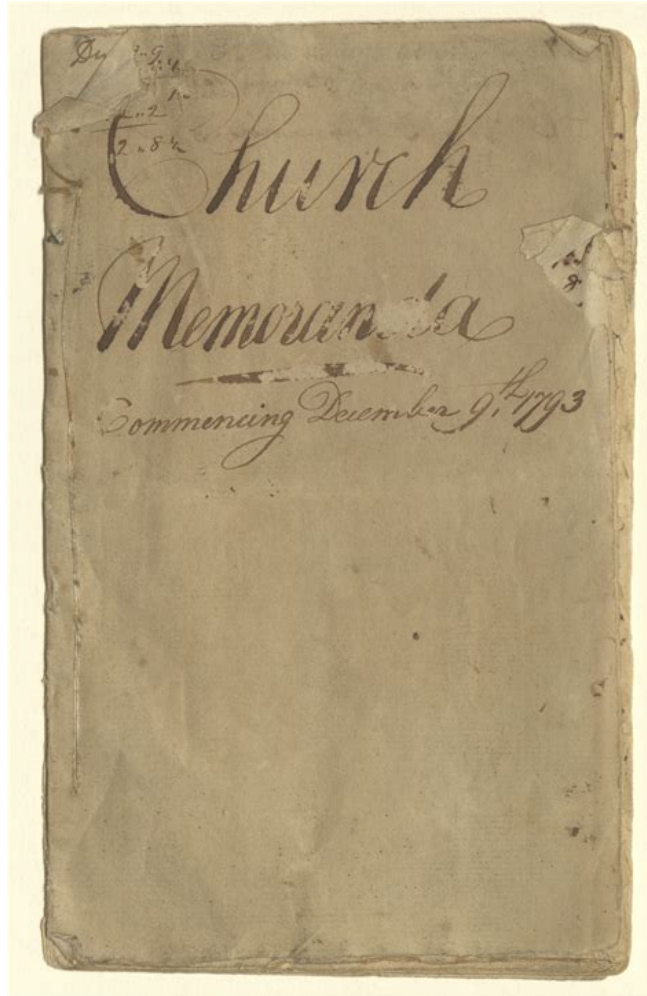 2 " 8 ½
Church
Memoranda
Commencing December 9.th 1793